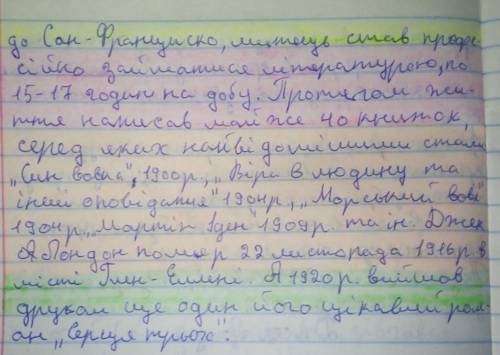 до Сан-Франциско, митець став профе-
сійно займатися літературою, по
15-17 годин на добу. Протягом жи-
ття написав майже 40 книжок,
серед яких найвідомішими стали
„Син вовка", 1900р., „Віра в людину та
інші оповідання" 1904р., „Морський вовк"
1904р. „Мартін Іден" 1909р. та ін. Джек
Лондон помер 22 листопада 1916р. в
місті Глен-Еллені. А 1920р. вийшов
друком ще один його цікавий ром-
ан „Серця трьох".